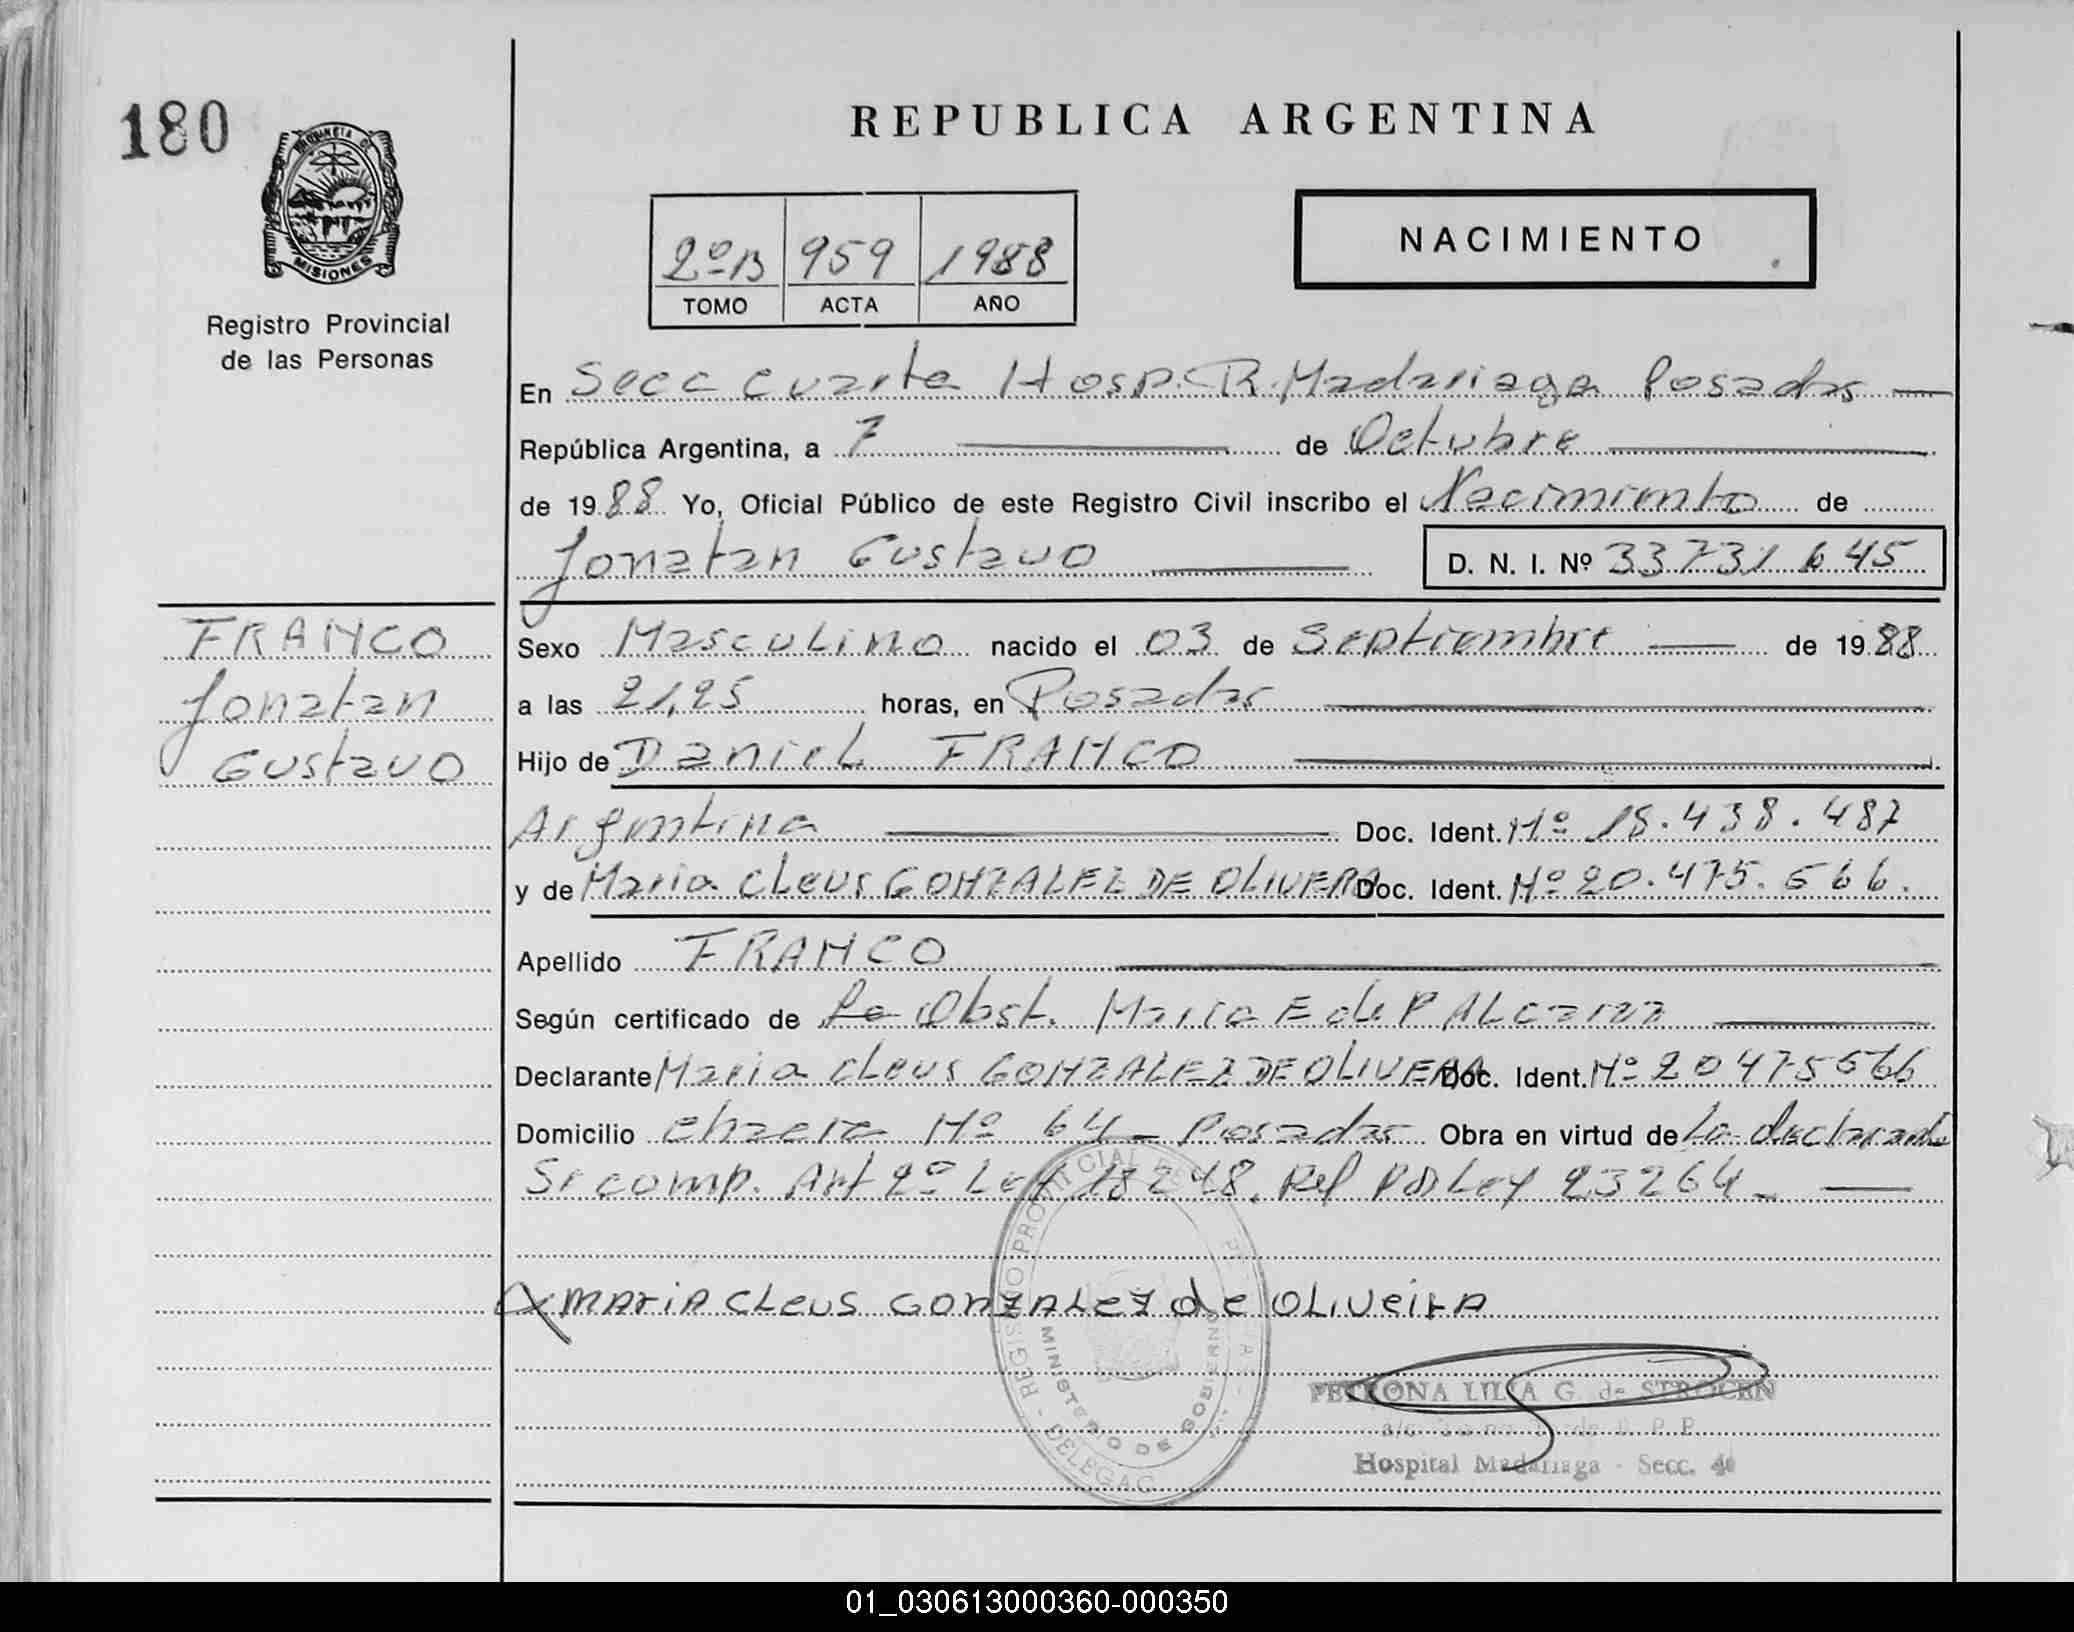 180
PROVINCIA DE
MISIONES
Registro Provincial
de las Personas
REPUBLICA ARGENTINA
2º B 959 1988
TOMO ACTA AÑO
NACIMIENTO
En Secc cuarta Hosp. R. Madariaga Posadas
República Argentina, a 7 de Octubre
de 1988 Yo, Oficial Público de este Registro Civil inscribo el Nacimiento de
Jonatan Gustavo D. N. I. Nº 33731645
FRANCO
Jonatan
Gustavo
Sexo Masculino nacido el 03 de Septiembre de 1988
a las 21,25 horas, en Posadas
Hijo de Daniel FRANCO
Argentina Doc. Ident. Nº 18.438.487
y de Maria Cleus GONZALEZ DE OLIVERA Doc. Ident. Nº 20.475.566.
Apellido FRANCO
Según certificado de La Obst. Maria E de P ALcaraz
Declarante Maria Cleus GONZALEZ DE OLIVERA Doc. Ident. Nº 20475566
Domicilio chacra Nº 64 - Posadas Obra en virtud de Lo declarado
Se comp. Art 2º Ley 18248. Ref por Ley 23264 -
MARIA CLeus GONZALEZ de OLIVeiRA
REGISTRO PROVINCIAL DE
MINISTERIO DE GOBIERNO
DELEGAC
PETRONA LILIA G. de STROCEN
Hospital Madariaga - Secc. 4º
01_030613000360-000350